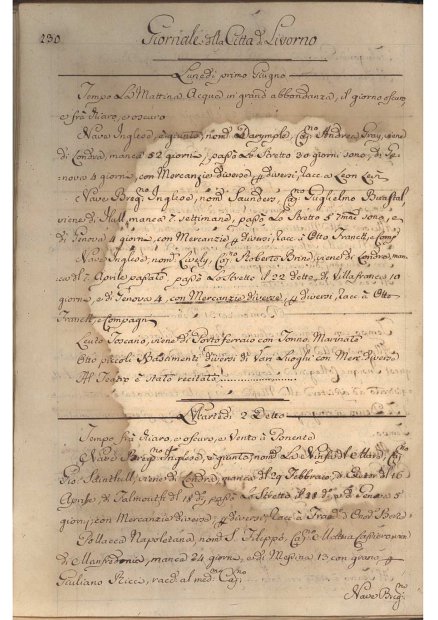 230 Giornale della Città di Livorno
Lunedì primo Giugno
Tempo La Mattina Acqua in grand'abbondanza, il giorno
e frà chiaro, e oscuro
Nave Inglese, è giunta, nomta Darymple, Capno Andrea Gray, viene
di Londra, manca 52 giorni, passò Lo Stretto 30 giorni sono, di Ge-
nova 4 giorni, con Mercanzie diverse pr diversi, racc a Leon
Nave Bregno Inglese, nomta Saunders, Capno Guglielmo
viene di Hull, manca 7 settimane, passò Lo Stretto 5 sono, e
di Genova 4 giorni, con Mercanzie pr diversi, racc à Otto Franck, e Comp
Nave Inglese, nomta Lively, Capno Roberto viene di Londra, man
ca di 7 Aprile passato passò Lo Stretto il 22 detto, di Villafranca 10
giorni, e di Genova 4, con Mercanzie diverse, pr diversi, racc à Otto
Franck, e Compagni
Leuto Toscano, viene di Porto ferraio con Tonno Marinato
Otto piccoli Bastimenti diversi di Vari Luoghi con Merc diverse
Al Teatro è stato recitato
Martedì 2 Detto
Tempo frà chiaro, e oscuro, e Vento à Ponente
Nave Inglese, è giunta, nomta La Ninfa del Mare, Capno
viene di Londra, manca del 29 Febbraio, di 16
Aprile, di Falmouth il 18 do, passò Lo Stretto il 28 do, e di Genova 5
giorni, con Mercanzie diverse, pr diversi, racc à
Pollacca Napoletana, nomta S. Filippo, Capno Mattia Cafiero, viene
di Manfredonia, manca 24 giorni, e di Messina 13 con grano pr
Giuliano Ricci, racc al medmo Capno
Nave Bregno